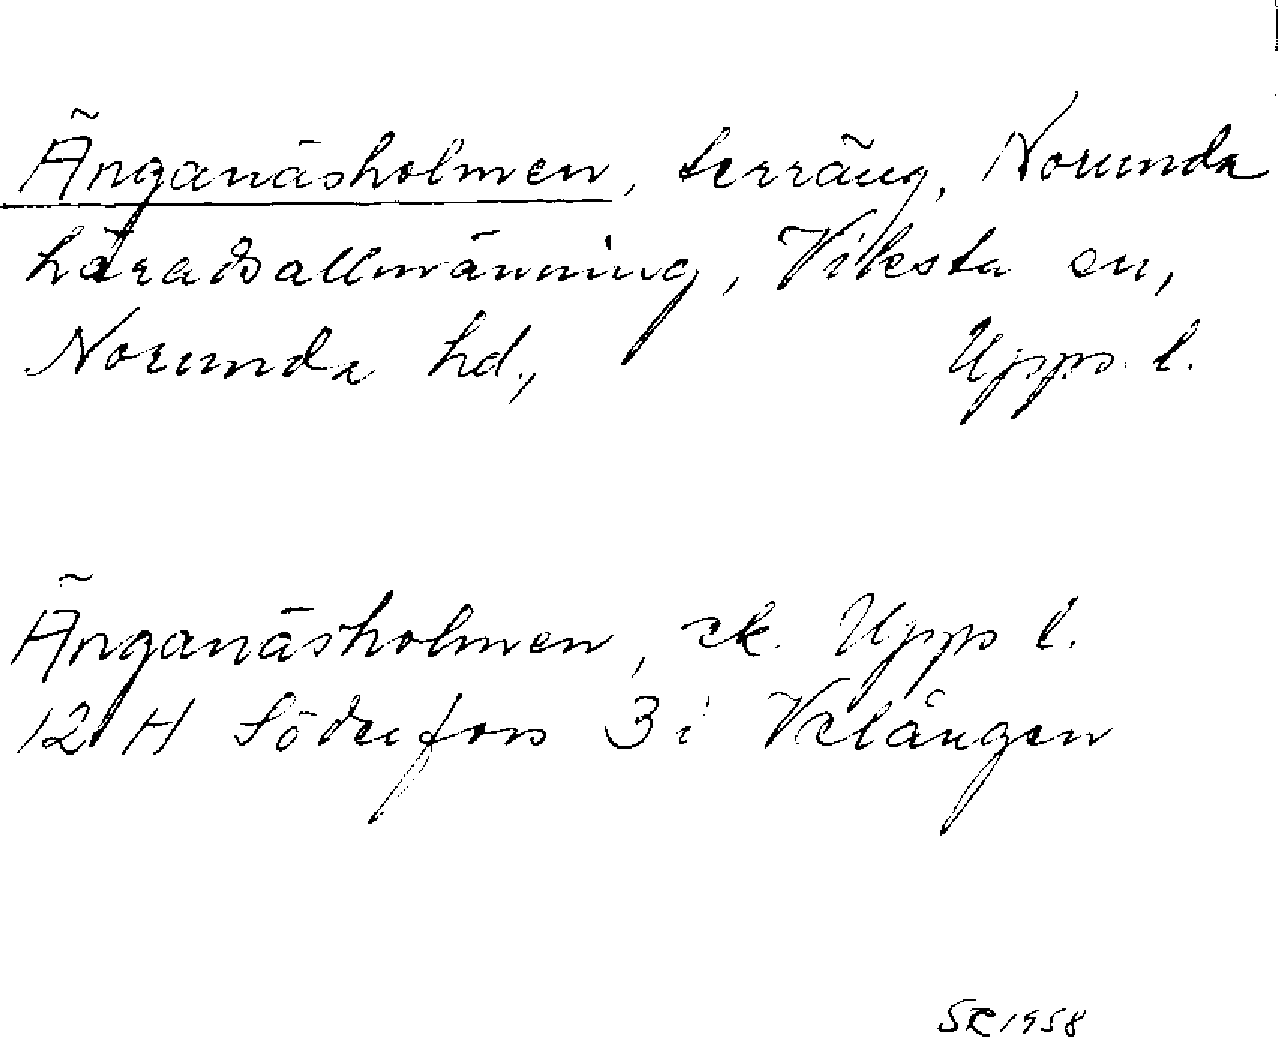 Änganäsholmen, terräng, Norunda
häradsallmänning, Viksta sn,
Norunda hd., Upps. l.
Änganäsholmen, ek. Upps l.
12 H Söderfors 3 i Velången
SR 1958